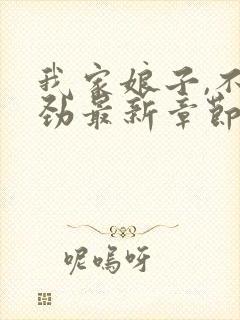 我家娘子,不
劲最新章节
呢喃呀